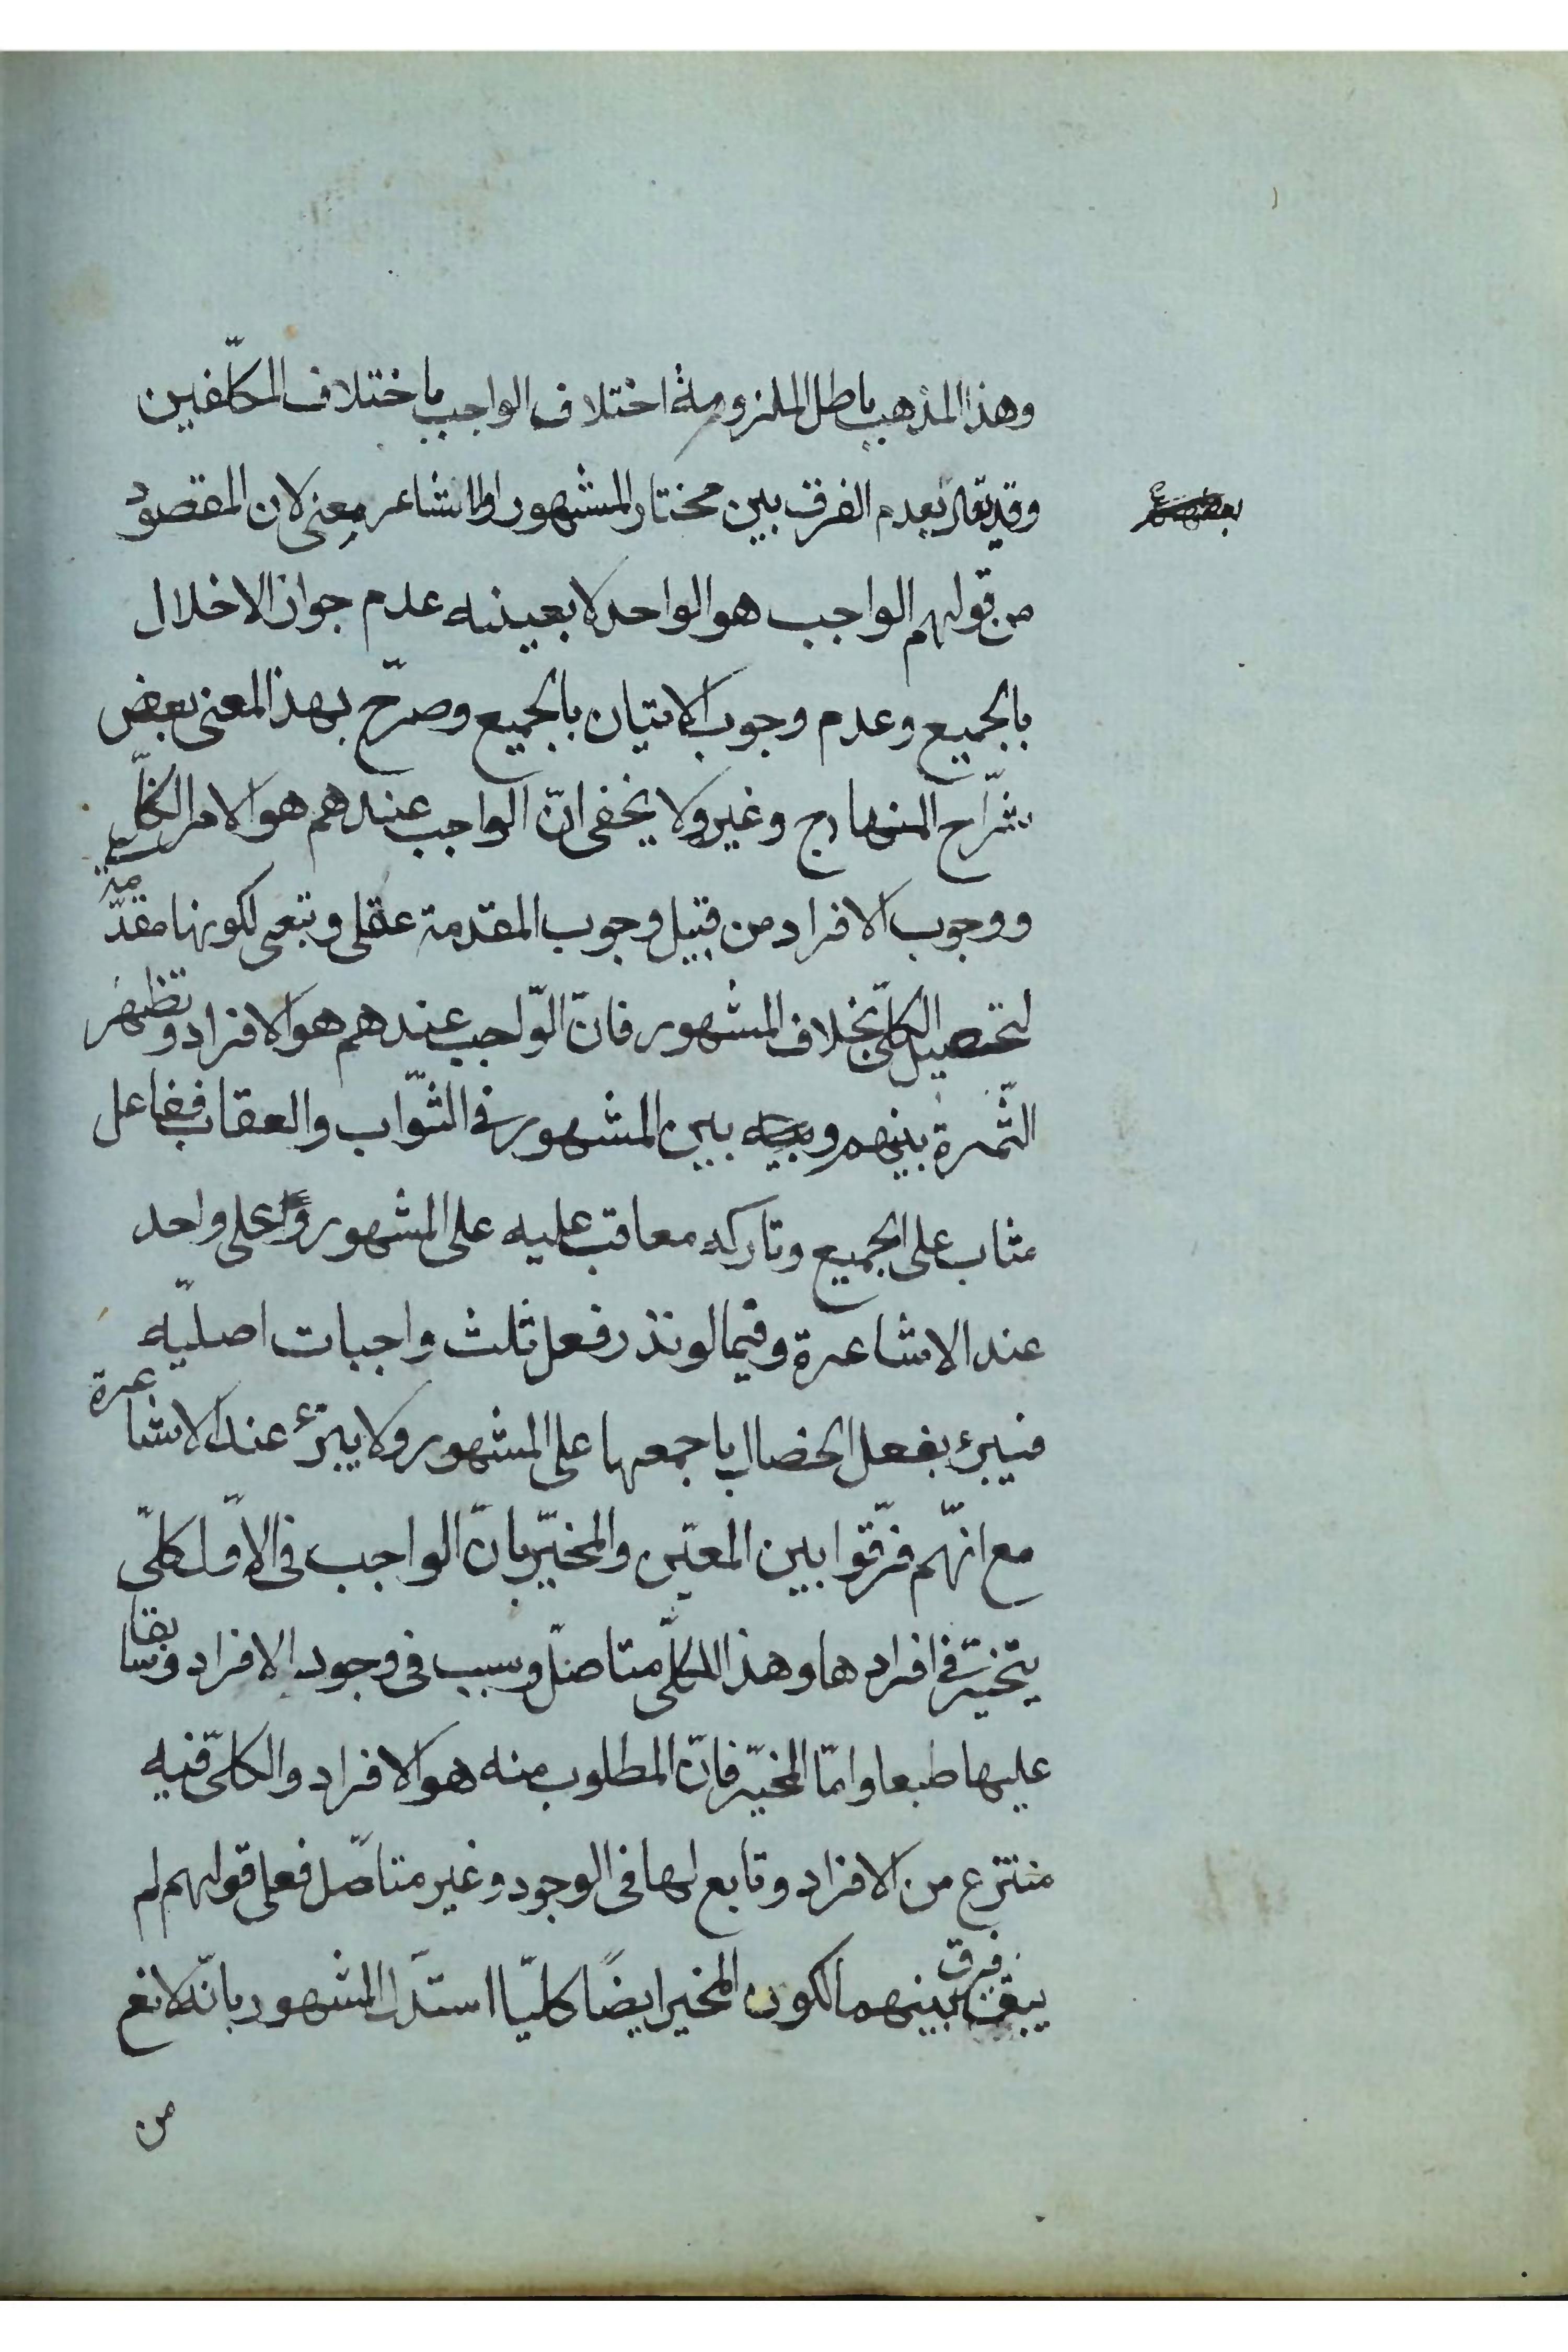 وهذا المذهب باطل لملزومة اختلاف الواجب باختلاف المكلّفين
وقد يقال بعدم الفرق بين مختار المشهور والاشاعر معنى لان المقصود
من قولهم الواجب هو الواحد لا بعينه عدم جواز الاخلال
بالجميع وعدم وجوب الاتيان بالجميع وصرّح بهذا المعنى بعض
شرّاح المنهاج وغيره ولا يخفى انّ الواجب عندهم هو الامر الكلّى
ووجوب الافراد من قبيل وجوب المقدمة عقلى وتبعى لكونها مقدّمة
لتحصيل الكلّى بخلاف المشهور فانّ الوّاجب عندهم هو الافراد وتظهر
الثّمرة بينهم وبين المشهور فى الثّواب والعقاب ففاعل
مثاب على الجميع وتاركه معاقب عليه على المشهور وعلى واحد
عند الاشاعرة وفيما لو نذر فعل ثلث واجبات اصليّه
فيبرء بفعل الخصال باجمعها على المشهور ولا يبرء عند الاشاعرة
مع انّهم فرّقوا بين المعيّن والمخيّر بانّ الواجب فى الاوّل كلّى
يتخيّر فى افرادها وهذا الكلّى متاصّل وسبب فى وجود الافراد وسابقا
عليها طبعا وامّا المخيّر فانّ المطلوب منه هو الافراد والكلّى فيه
منتزع من الافراد وتابع لها فى الوجود وغير متاصّل فعلى قولهم لم
يبق فرق بينهما لكون المخير ايضًا كليّا استدلّ المشهور بانّه لا نع
من